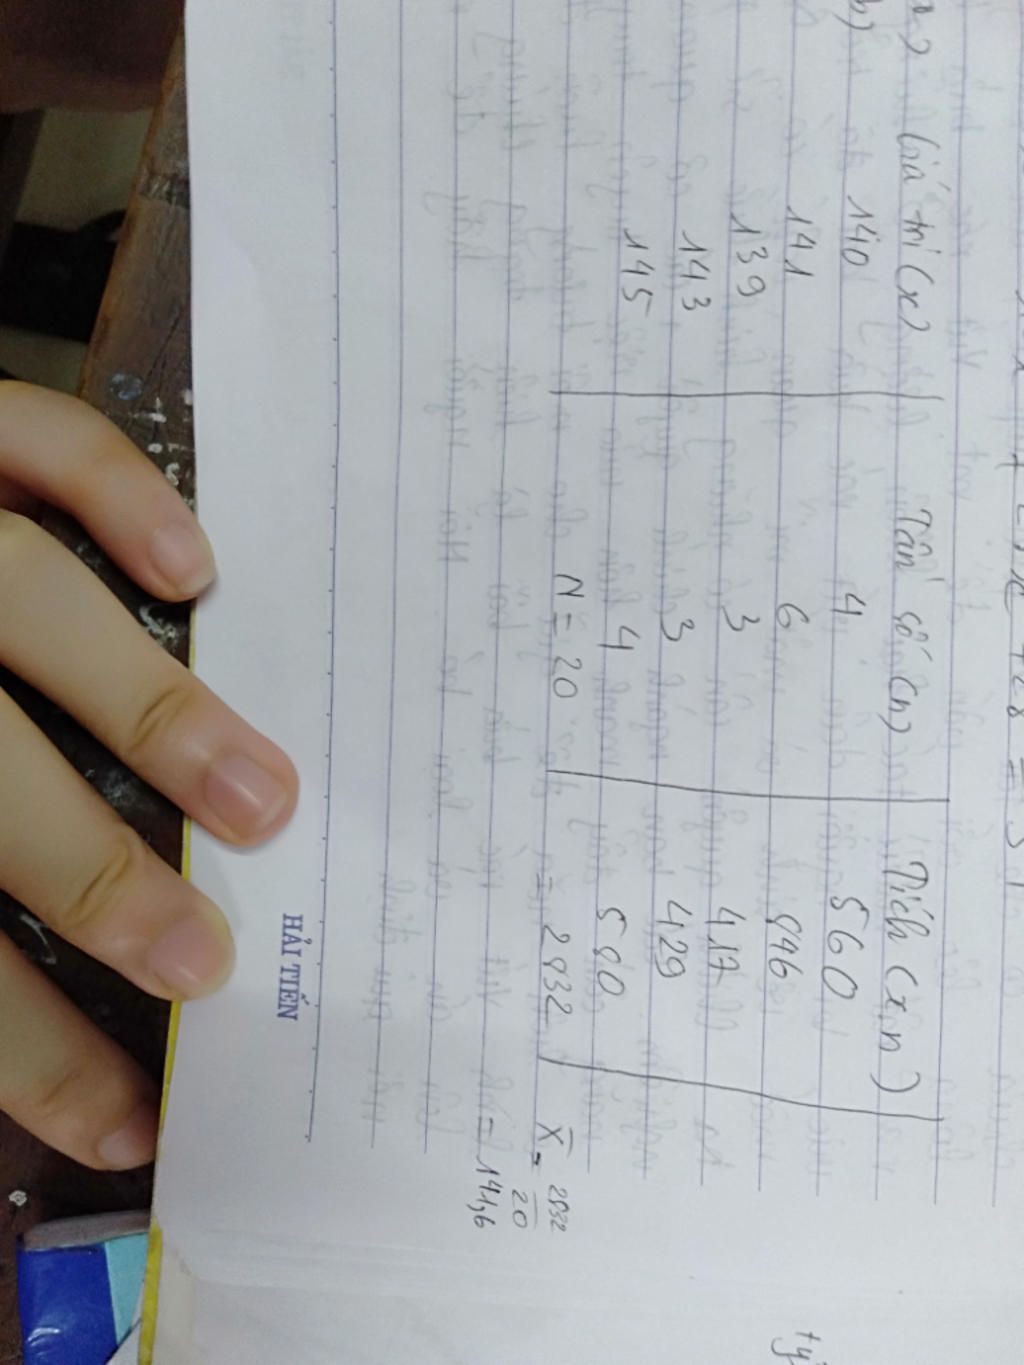 a)
b)
Giá trị (x) Tần số (n) Tích (x.n)
140 4 560
141 6 846
139 3 417
143 3 429
145 4 580
N = 20 = 2832 X̄ = 2832
20
= 141,6
HẢI TIẾN